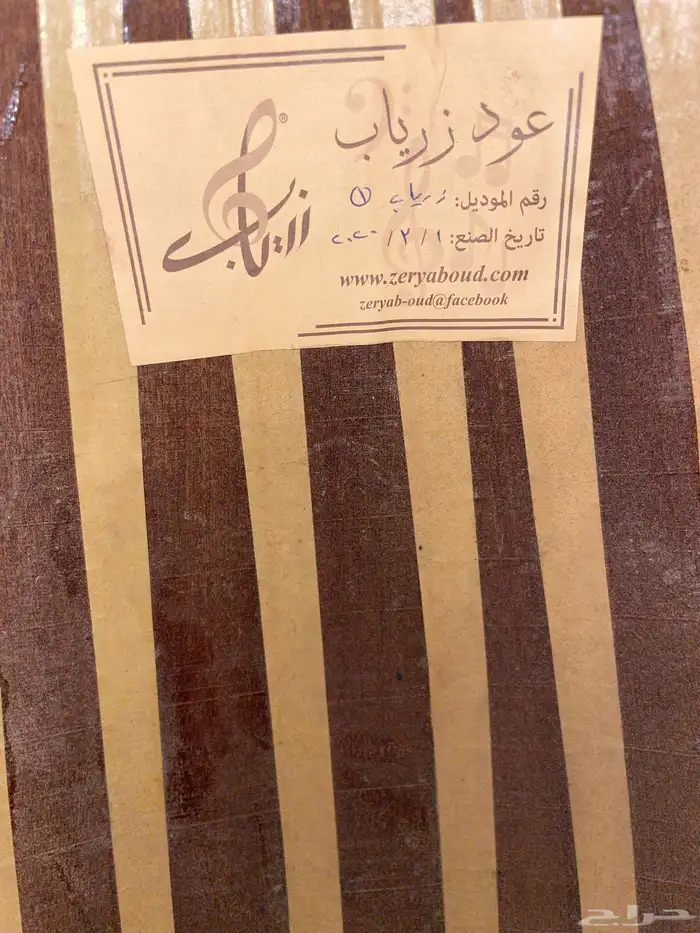 عود زرياب
زرياب
®
رقم الموديل: زرياب ١
تاريخ الصنع: ١ / ٢ / ٢٠٢٠
www.zeryaboud.com
zeryab-oud@facebook
حراج